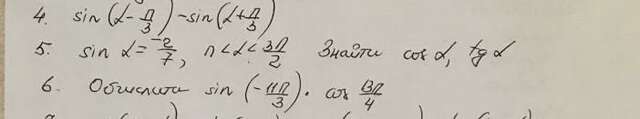 4. sin(α-π/3)-sin(α+π/3)
5. sin α=-2/7, π<α<3π/2 Знайти cos α, tg α
6. Обчислити sin(-11π/3)·cos 13π/4